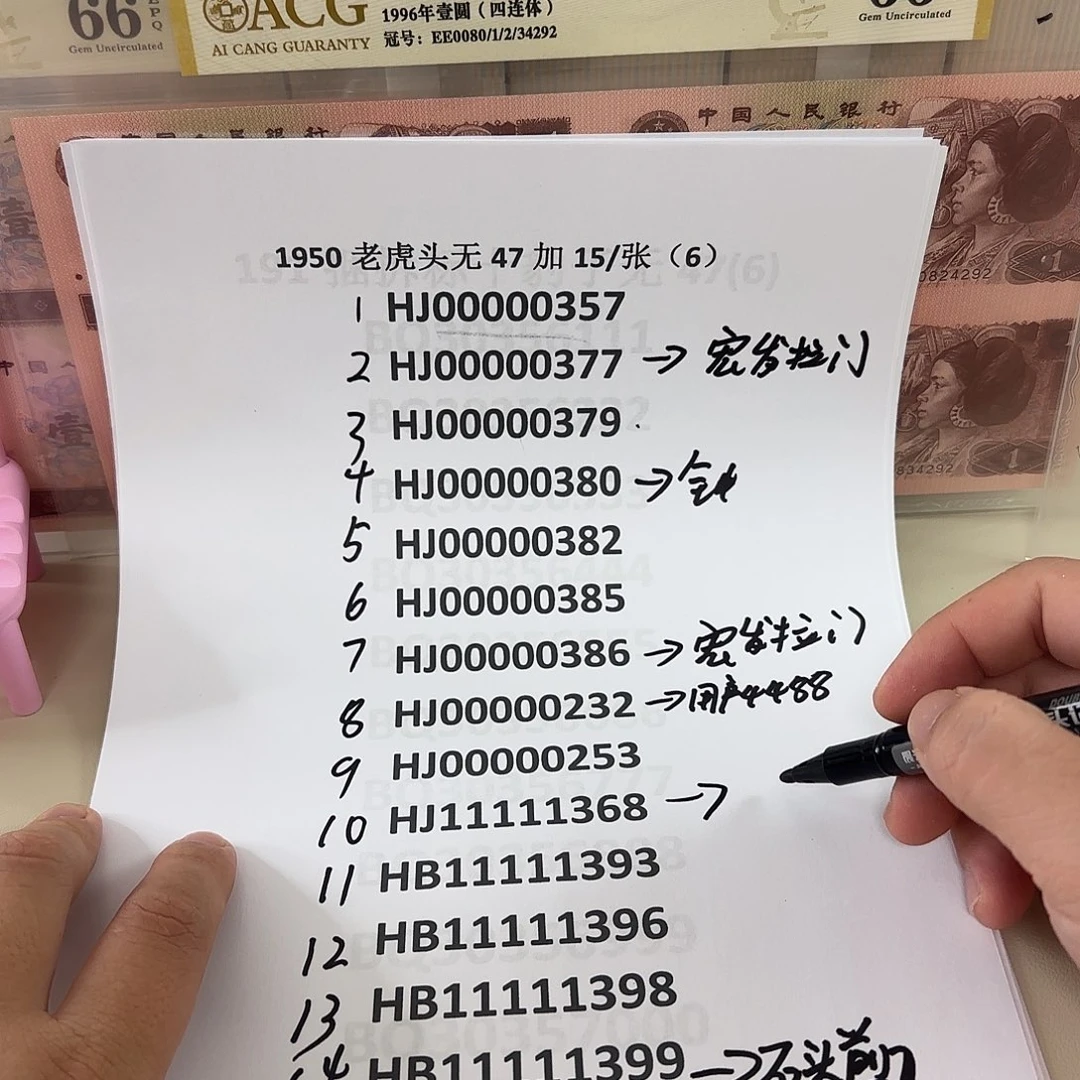 66 EPQ
Gem Uncirculated
ACG
AI CANG GUARANTY
1996年壹圆（四连体）
冠号：EE0080/1/2/34292
66
Gem Uncirculated
中国人民银行
0824292
1
834292
1
壹
壹
1950 老虎头无 47 加 15/张（6）
1 HJ00000357
2 HJ00000377 → 宏发拉门
3 HJ00000379
4 HJ00000380 →
5 HJ00000382
6 HJ00000385
7 HJ00000386 → 宏发拉门
8 HJ00000232 → 用户4488
9 HJ00000253
10 HJ11111368 →
11 HB11111393
12 HB11111396
13 HB11111398
14 HB11111399 → 石头